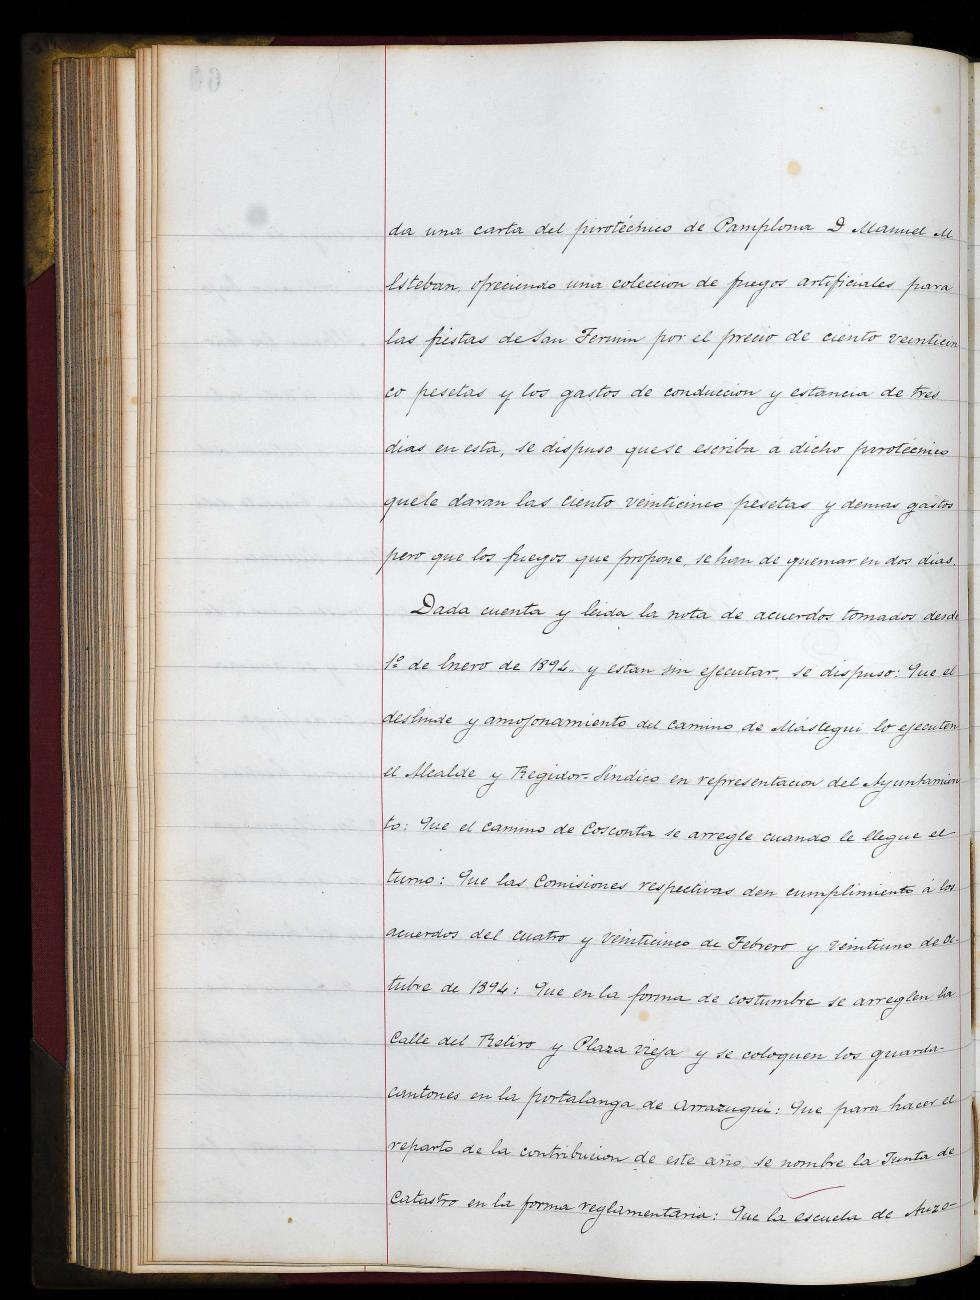 da una carta del pirotéchnico de Pamplona D Manuel M
Esteban, ofreciendo una coleccion de fuegos artificiales para
las fiestas de San Fermin por el precio de ciento veinticin
co pesetas y los gastos de conduccion y estancia de tres
dias en esta, se dispuso que se escriba á dicho pirotécnico
que le daran las ciento veinticinco pesetas y demas gastos
pero que los fuegos que propone, se han de quemar en dos dias.
Dada cuenta y leida la nota de acuerdos tomados desde
1º de Enero de 1894 y estan sin ejecutar, se dispuso: Que el
deslinde y amojonamiento del camino de Mástegui lo ejecuten
el Alcalde y Regidor=Síndico en representacion del Ayuntamien
to: Que el camino de Cosconta se arregle cuando le llegue el
turno: Que las Comisiones respectivas den cumplimiento á los
acuerdos del cuatro y veinticinco de Febrero y veintiuno de Oc-
tubre de 1894: Que en la forma de costumbre se arreglen la
Calle del Retiro y Plaza vieja y se coloquen los guarda-
cantones en la portalanga de Arrazugui: Que para hacer el
reparto de la contribucion de este año, se nombre la Junta de
Catastro en la forma reglamentaria: Que la escuela de Auzo-